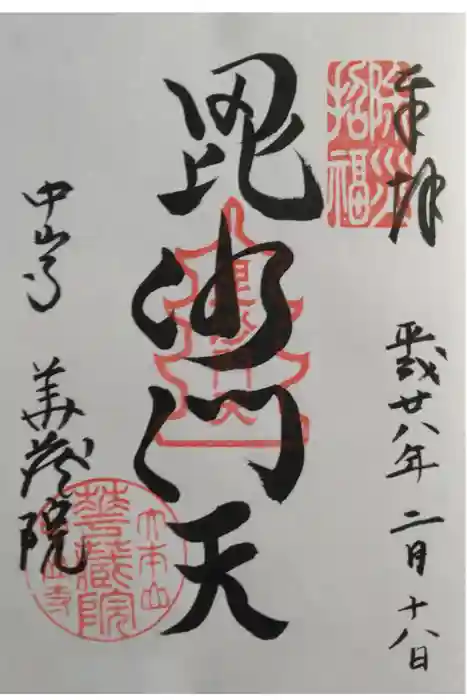 奉拝
平成廿八年二月十八日
除災
招福
毘沙門天
中山寺 華蔵院
大本山
華蔵院
中山寺